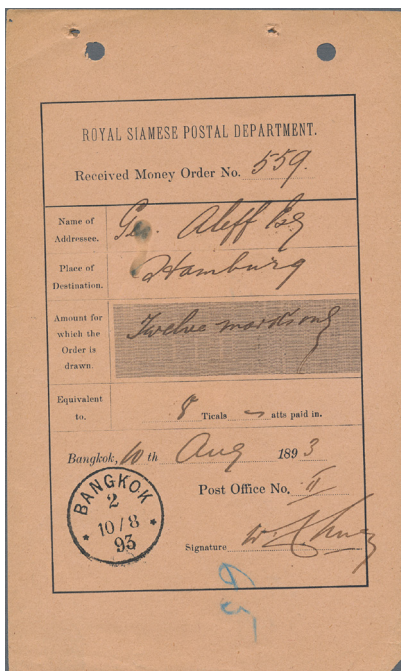 ROYAL SIAMESE POSTAL DEPARTMENT.
Received Money Order No. 559.
Name of Addressee. Geo. Aleff Esq
Place of Destination. Hamburg
Amount for which the Order is drawn. Twelve marks only
Equivalent to. 8 Ticals — atts paid in.
Bangkok, 10 th Aug 1893
Post Office No. II
BANGKOK
2
10/8
93
Signature
65